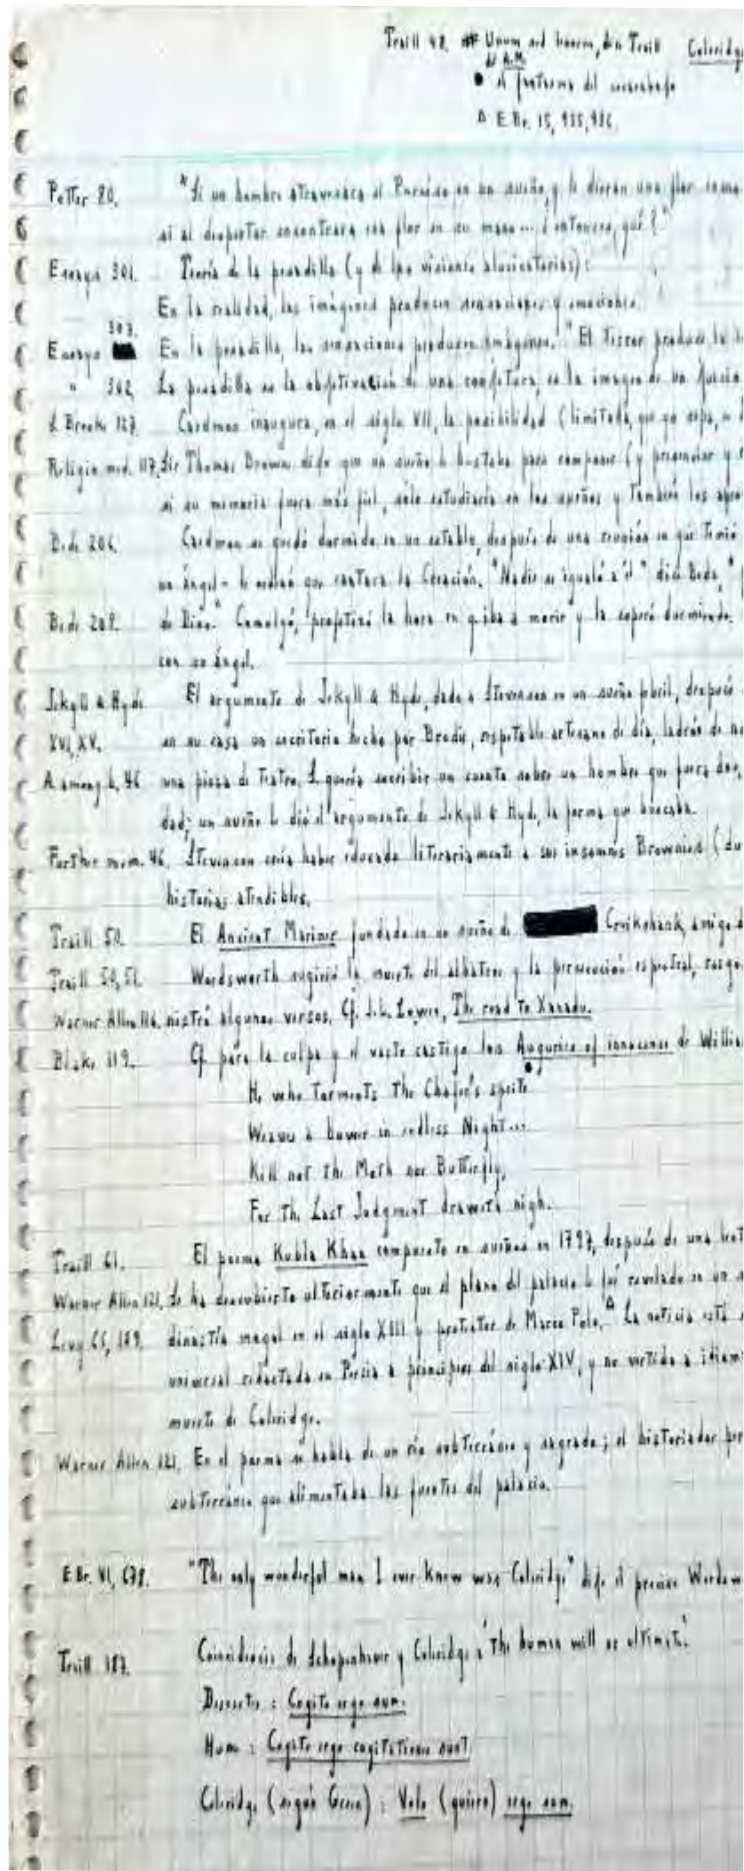 Traill 48. Unum ad unum, dice Traill Coleridge
de A.M.
• el fantasma del escarabajo
Δ E.Br. 15, 935, 936
Potter 80. "Si un hombre atravesara el Paraíso en un sueño, y le dieran una flor como
si al despertar encontrara esa flor en su mano... ¿entonces, qué?"
Essays 301. Teoría de la pesadilla (y de las visiones alucinatorias):
En la realidad, las imágenes producen sensaciones y emociones.
303.
Essays En la pesadilla, las sensaciones producen imágenes. "El terror produce la
" 302 La pesadilla es la objetivación de una conjetura, es la imagen de un
S. Brooke 127. Caedmon inaugura, en el siglo VII, la posibilidad (limitada, que yo sepa, a
Religio med. 117. Sir Thomas Browne dijo que un sueño le bastaba para componer (y presenciar y
si su memoria fuera más fiel, sólo estudiaría en los sueños y también los
Bede 206. Caedmon se quedó dormido en un establo, después de una reunión en que temió
un ángel- le ordenó que cantara la Creación. "Nadie se igualó a él" dice Beda, "
Bede 208. de Dios." Comulgó, profetizó la hora en q. iba a morir y la esperó durmiendo.
con su ángel.
Jekyll & Hyde El argumento de Jekyll & Hyde, dado a Stevenson en un sueño febril, después
XVI, XV. en su casa un escritorio hecho por Brodie, respetable artesano de día, ladrón de
A among b. 46 una pieza de teatro. S. quería escribir un cuento sobre un hombre que fuera dos,
dad; un sueño le dió el argumento de Jekyll & Hyde, la forma que buscaba.
Further mem. 46. Stevenson creía haber educado literariamente a sus insomnes Brownies (
historias atendibles.
Traill 50. El Ancient Mariner fundado en un sueño de Cruikshank, amigo
Traill 50, 51. Wordsworth sugirió la muerte del albatros y la persecución espectral,
Warner Allen 116. nistró algunos versos. Cf. J.L. Lowes, The road to Xanadu.
Blake 119. Cf. para la culpa y el vasto castigo los Auguries of innocence de
He who torments the Chafer's sprite •
Weaves a bower in endless Night...
Kill not the Moth nor Butterfly,
For the Last Judgment draweth nigh.
Traill 61. El poema Kubla Khan compuesto en sueños en 1797, después de una
Warner Allen 121. Se ha descubierto ulteriormente que el plano del palacio le fué revelado en un
Levy 65, 189. dinastía mogol en el siglo XIII y protector de Marco Polo. Δ La noticia está
universal redactada en Persia a principios del siglo XIV, y no vertida a
muerte de Coleridge.
Warner Allen 121. En el poema se habla de un río subterráneo y sagrado; el historiador
subterráneo que alimentaba las fuentes del palacio.
E.Br. VI, 678. "The only wonderful man I ever knew was Coleridge" dijo el preciso
Traill 187. Coincidencia de Schopenhauer y Coleridge: 'The human will as ultimate'.
Descartes: Cogito ergo sum.
Hume: Cogito ergo cogitationes sunt
Coleridge (según Green): Volo (quiero) ergo sum.